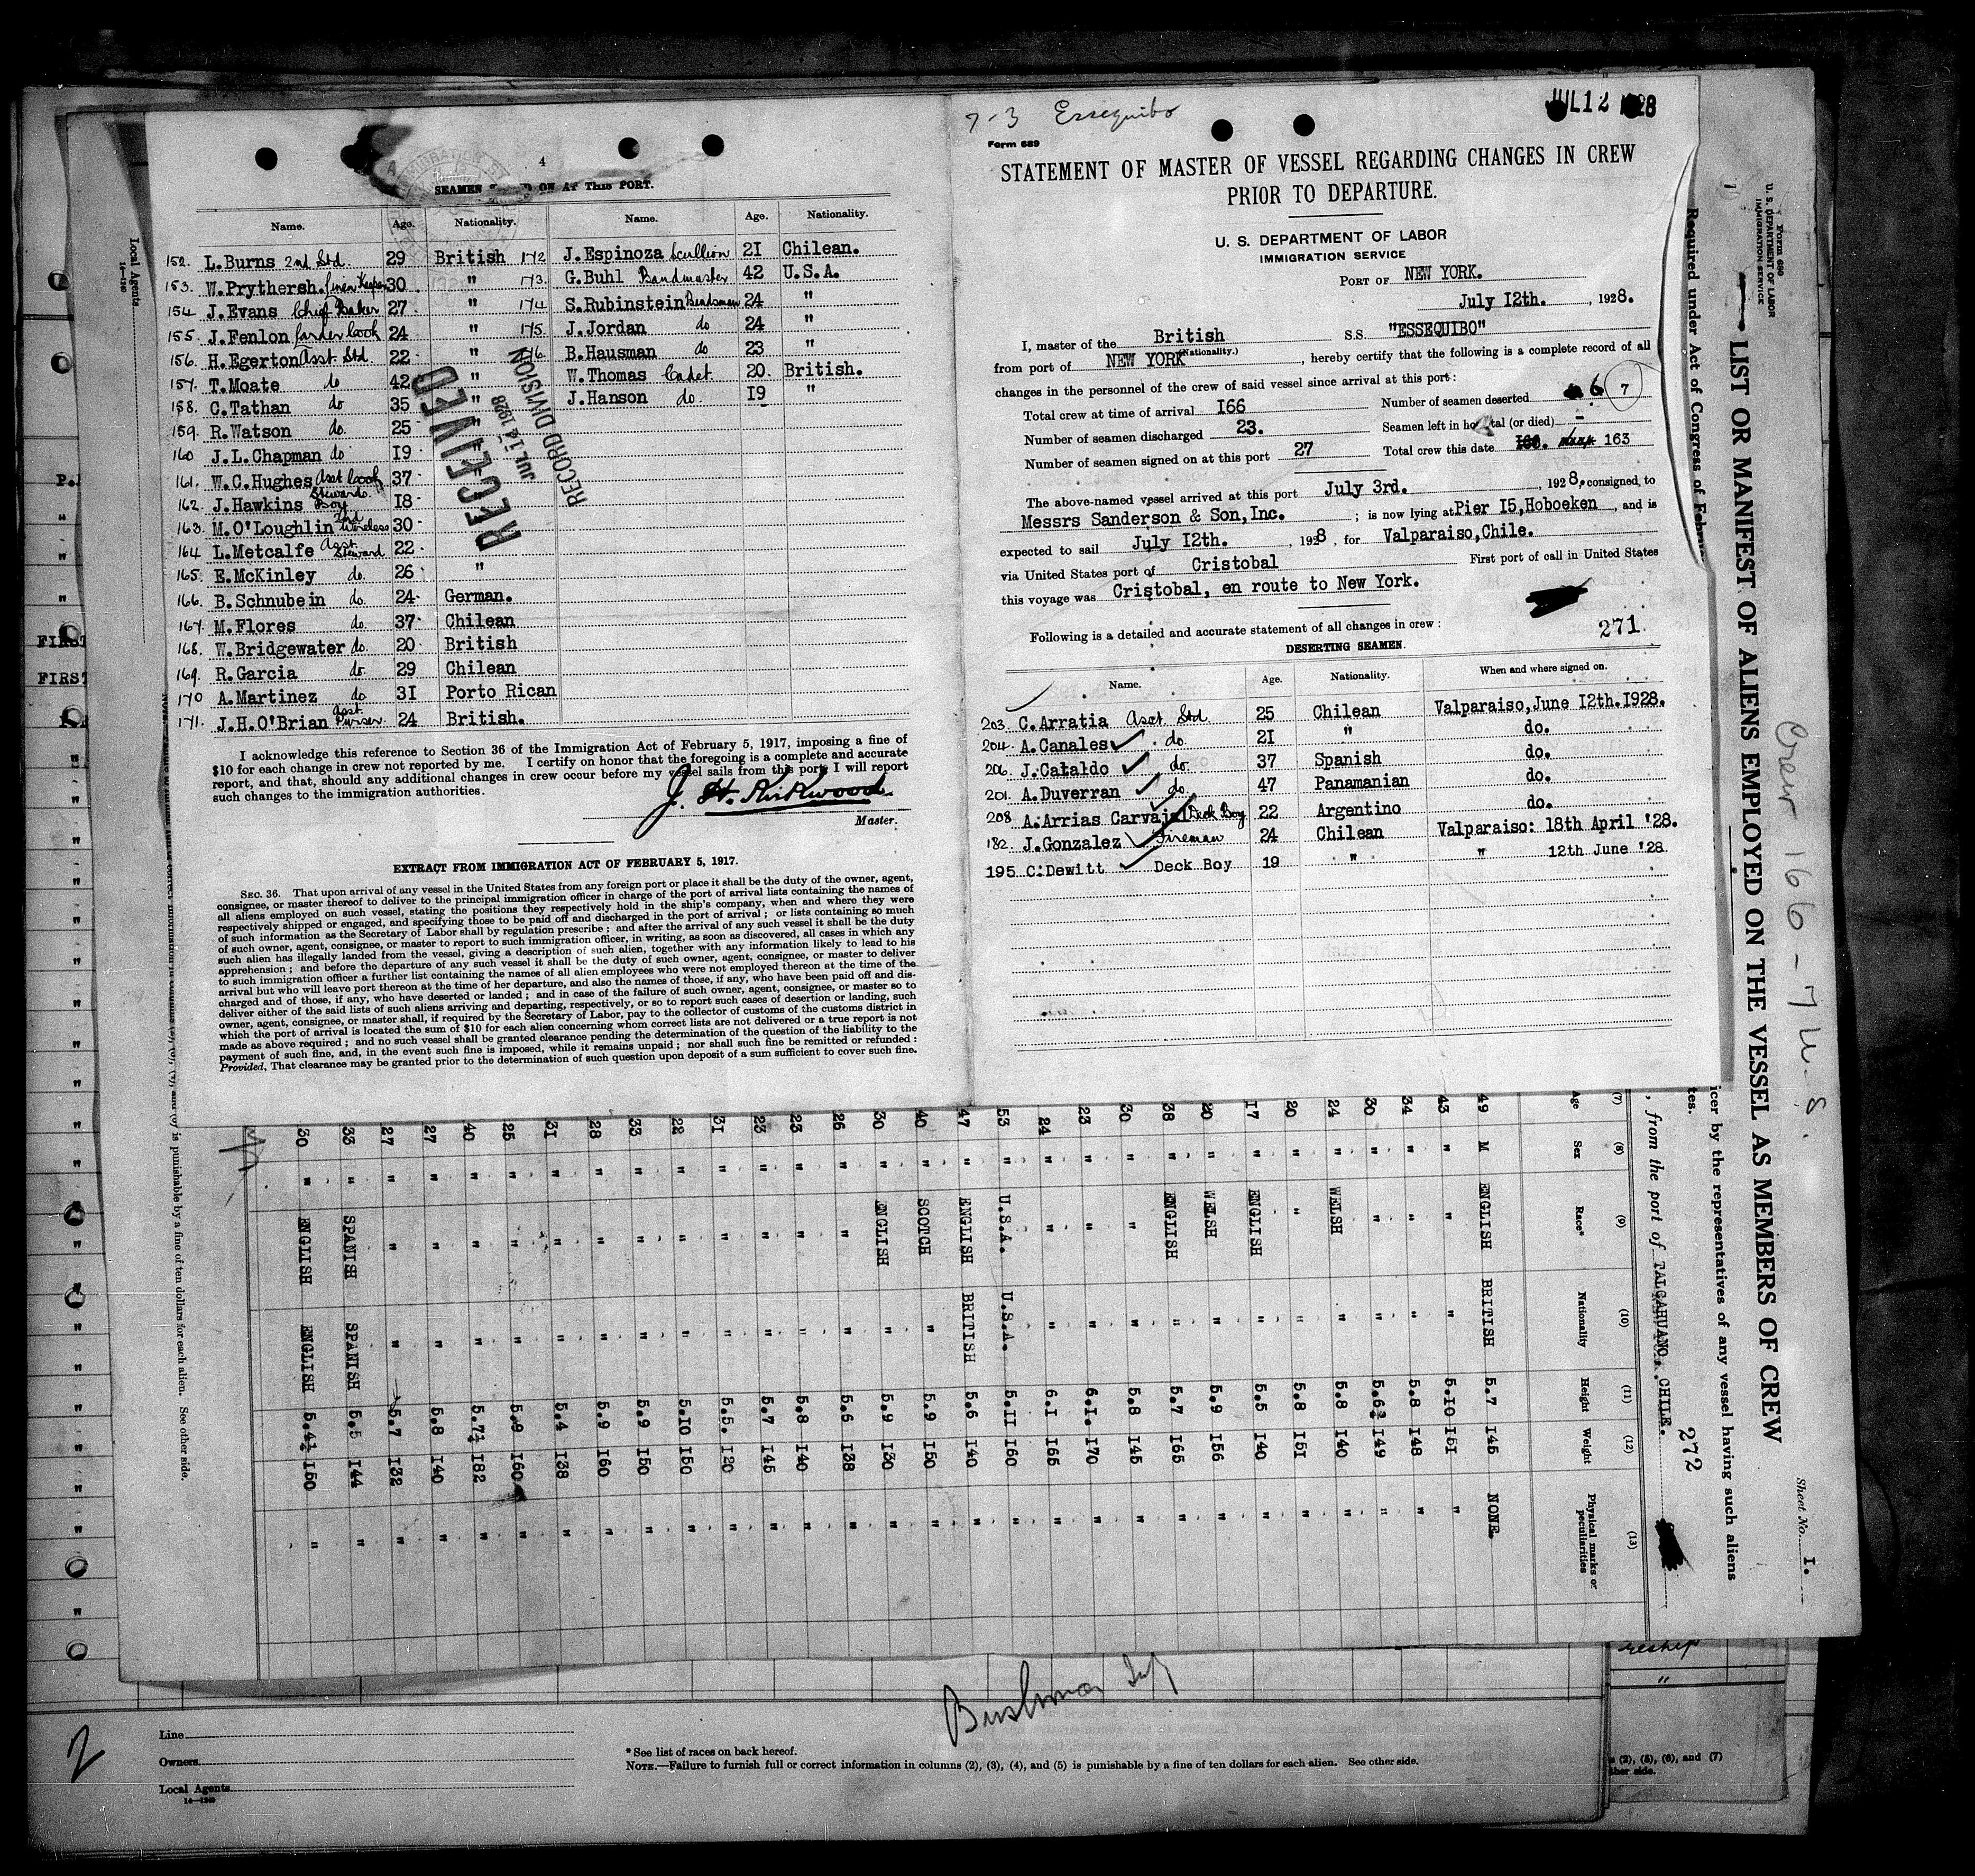 4
SEAMEN ON AT THIS PORT.
Name. Age. Nationality. Name. Age. Nationality.
152. L.Burns 2nd Std. 29 British 172 J.Espinoza Scullion 21 Chilean.
153. W.Prythersh. Linen Keeper 30 " 173. G.Buhl Bandmaster 42 U.S.A.
154 J.Evans Chief Baker 27 " 174 S.Rubinstein Bandsman 24 "
155. J.Fenlon Larder Cook 24 " 175. J.Jordan do 24 "
156. H.Egerton Asst Std. 22 " 176. B.Hausman do 23 "
157. T.Moate do 42 " W.Thomas Cadet 20. British.
158. C.Tathan do 35 " J.Hanson do. 19 "
159. R.Watson do. 25
160 J.L.Chapman do 19
161. W.C.Hughes Asst Cook 37
162. J.Hawkins Stewards Boy 18
163. M.O'Loughlin 3rd Wireless 30
164 L.Metcalfe Asst Steward 22
165. E.McKinley do. 26 "
166. B.Schnubein do. 24 German.
167. M.Flores do. 37 Chilean
168. W.Bridgewater do. 20 British
169. R.Garcia do. 29 Chilean
170 A.Martinez do 31 Porto Rican
171. J.H.O'Brian Asst Purser. 24 British.
RECEIVED
JUL 14 1928
RECORD DIVISION
I acknowledge this reference to Section 36 of the Immigration Act of February 5, 1917, imposing a fine of
$10 for each change in crew not reported by me. I certify on honor that the foregoing is a complete and accurate
report, and that, should any additional changes in crew occur before my vessel sails from this port, I will report
such changes to the immigration authorities.
J. H. Kirkwood
Master.
EXTRACT FROM IMMIGRATION ACT OF FEBRUARY 5, 1917.
SEC. 36. That upon arrival of any vessel in the United States from any foreign port or place it shall be the duty of the owner, agent,
consignee, or master thereof to deliver to the principal immigration officer in charge of the port of arrival lists containing the names of
all aliens employed on such vessel, stating the positions they respectively hold in the ship's company, when and where they were
respectively shipped or engaged, and specifying those to be paid off and discharged in the port of arrival; or lists containing so much
of such information as the Secretary of Labor shall by regulation prescribe; and after the arrival of any such vessel it shall be the duty
of such owner, agent, consignee, or master to report to such immigration officer, in writing, as soon as discovered, all cases in which any
such alien has illegally landed from the vessel, giving a description of such alien, together with any information likely to lead to his
apprehension; and before the departure of any such vessel it shall be the duty of such owner, agent, consignee, or master to deliver
to such immigration officer a further list containing the names of all alien employees who were not employed thereon at the time of the
arrival but who will leave port thereon at the time of her departure, and also the names of those, if any, who have been paid off and dis-
charged and of those, if any, who have deserted or landed; and in case of the failure of such owner, agent, consignee, or master so to
deliver either of the said lists of such aliens arriving and departing, respectively, or so to report such cases of desertion or landing, such
owner, agent, consignee, or master shall, if required by the Secretary of Labor, pay to the collector of customs of the customs district in
which the port of arrival is located the sum of $10 for each alien concerning whom correct lists are not delivered or a true report is not
made as above required; and no such vessel shall be granted clearance pending the determination of the question of the liability to the
payment of such fine, and, in the event such fine is imposed, while it remains unpaid; nor shall such fine be remitted or refunded:
Provided, That clearance may be granted prior to the determination of such question upon deposit of a sum sufficient to cover such fine.
7-3 Essequibo
JUL 12 1928
Form 689
STATEMENT OF MASTER OF VESSEL REGARDING CHANGES IN CREW
PRIOR TO DEPARTURE.
U. S. DEPARTMENT OF LABOR
IMMIGRATION SERVICE
PORT OF NEW YORK.
July 12th. , 1928.
I, master of the British S.S. "ESSEQUIBO"
(Nationality.)
from port of NEW YORK , hereby certify that the following is a complete record of all
changes in the personnel of the crew of said vessel since arrival at this port:
Total crew at time of arrival 166 Number of seamen deserted 6 7
Number of seamen discharged 23. Seamen left in hospital (or died) -
Number of seamen signed on at this port 27 Total crew this date 163
The above-named vessel arrived at this port July 3rd. , 1928, consigned to
Messrs Sanderson & Son, Inc. ; is now lying at Pier 15, Hoboeken , and is
expected to sail July 12th. , 1928 , for Valparaiso, Chile.
via United States port of Cristobal First port of call in United States
this voyage was Cristobal, en route to New York.
Following is a detailed and accurate statement of all changes in crew:
271.
DESERTING SEAMEN.
Name. Age. Nationality. When and where signed on.
203. C.Arratia Asst Std 25 Chilean Valparaiso, June 12th.1928.
204. A.Canales do. 21 " do.
206. J.Cataldo do. 37 Spanish do.
201. A.Duverran do. 47 Panamanian do.
208 A.Arrias Carvajal Deck Boy 22 Argentino do.
182. J.Gonzalez Fireman 24 Chilean Valparaiso: 18th April '28.
195 C.Dewitt Deck Boy 19 " " 12th June '28
Form 690
U. S. DEPARTMENT OF LABOR
IMMIGRATION SERVICE
LIST OR MANIFEST OF ALIENS EMPLOYED ON THE VESSEL AS MEMBERS OF CREW
Required under Act of Congress of
icer by the representatives of any vessel having such aliens
tes.
, from the port of TALCAHUANO. CHILE.
272
Sheet No. 1.
Crew 166 - 7 U.S.
(7) (8) (9) (10) (11) (12) (13)
Age Sex Race* Nationality Height Weight Physical marks or peculiarities
49 M ENGLISH BRITISH 5.7 145 NONE.
43 " " " 5.10 151 "
34 " " " 5.8 148 "
30 " " " 5.6½ 149 "
24 " WELSH " 5.8 140 "
20 " " " 5.8 151 "
17 " ENGLISH " 5.5 140 "
20 " WELSH " 5.9 156 "
38 " ENGLISH " 5.7 165 "
30 " " " 5.8 145 "
23 " " " 6.1. 170 "
24 " " " 6.1 165 "
53 " U.S.A. U.S.A. 5.11 160 "
47 " ENGLISH BRITISH 5.6 140 "
40 " SCOTCH " 5.9 150 "
30 " ENGLISH " 5.9 130 "
26 " " " 5.6 138 "
23 " " " 5.8 140 "
23 " " " 5.7 145 "
31 " " " 5.5. 120 "
22 " " " 5.10 150 "
33 " " " 5.9 150 "
28 " " " 5.9 160 "
31 " " " 5.4 138 "
25 " " " 5.9 160 "
40 " " " 5.7½ 182 "
27 " " " 5.8 140 "
27 " " " 5.7 132 "
33 " SPANISH SPANISH 5.5 144 "
30 " ENGLISH ENGLISH 5.4½ 150 "
is punishable by a fine of ten dollars for each alien. See other side.
Local Agents
14-1240
P.
FIRST
FIRST
2
Line
Owners
Local Agents
14-1240
*See list of races on back hereof.
NOTE.—Failure to furnish full or correct information in columns (2), (3), (4), and (5) is punishable by a fine of ten dollars for each alien. See other side.
(2), (5), (6), and (7)
ther side.